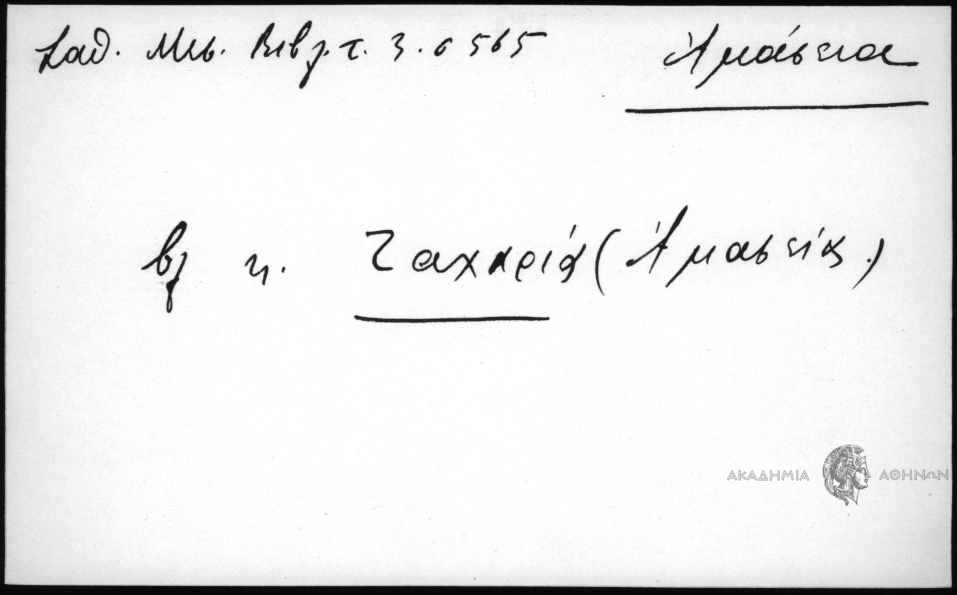 Σαθ. Μεσ. Βιβλ. τ. 3. σ 565 Ἀμάσεια
βλ κ. Ζαχαρίᾳ (Ἀμασείας)
ΑΚΑΔΗΜΙΑ ΑΘΗΝΩΝ